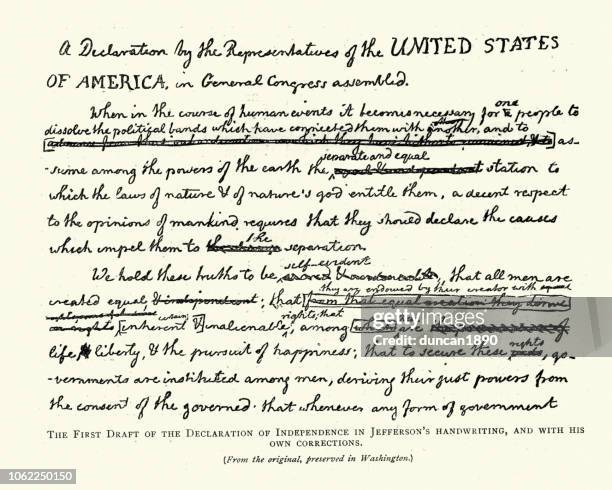 A Declaration by the Representatives of the UNITED STATES
OF AMERICA, in General Congress assembled.
When in the course of human events it becomes necessary for one people to
dissolve the political bands which have connected them with another, and to
as-
separate and equal
sume among the powers of the earth the station to
which the laws of nature & of nature's god entitle them, a decent respect
to the opinions of mankind requires that they should declare the causes
the
which impel them to separation.
self-evident
We hold these truths to be , that all men are
they are endowed by their creator with
created equal & independent; that from that equal creation they derive
rights; that
inherent & inalienable, among are
life, liberty, & the pursuit of happiness; that to secure these rights, go-
vernments are instituted among men, deriving their just powers from
the consent of the governed. that whenever any form of government
THE FIRST DRAFT OF THE DECLARATION OF INDEPENDENCE IN JEFFERSON'S HANDWRITING, AND WITH HIS
OWN CORRECTIONS.
(From the original, preserved in Washington.)
iStock
Credit: duncan1890
1062250150